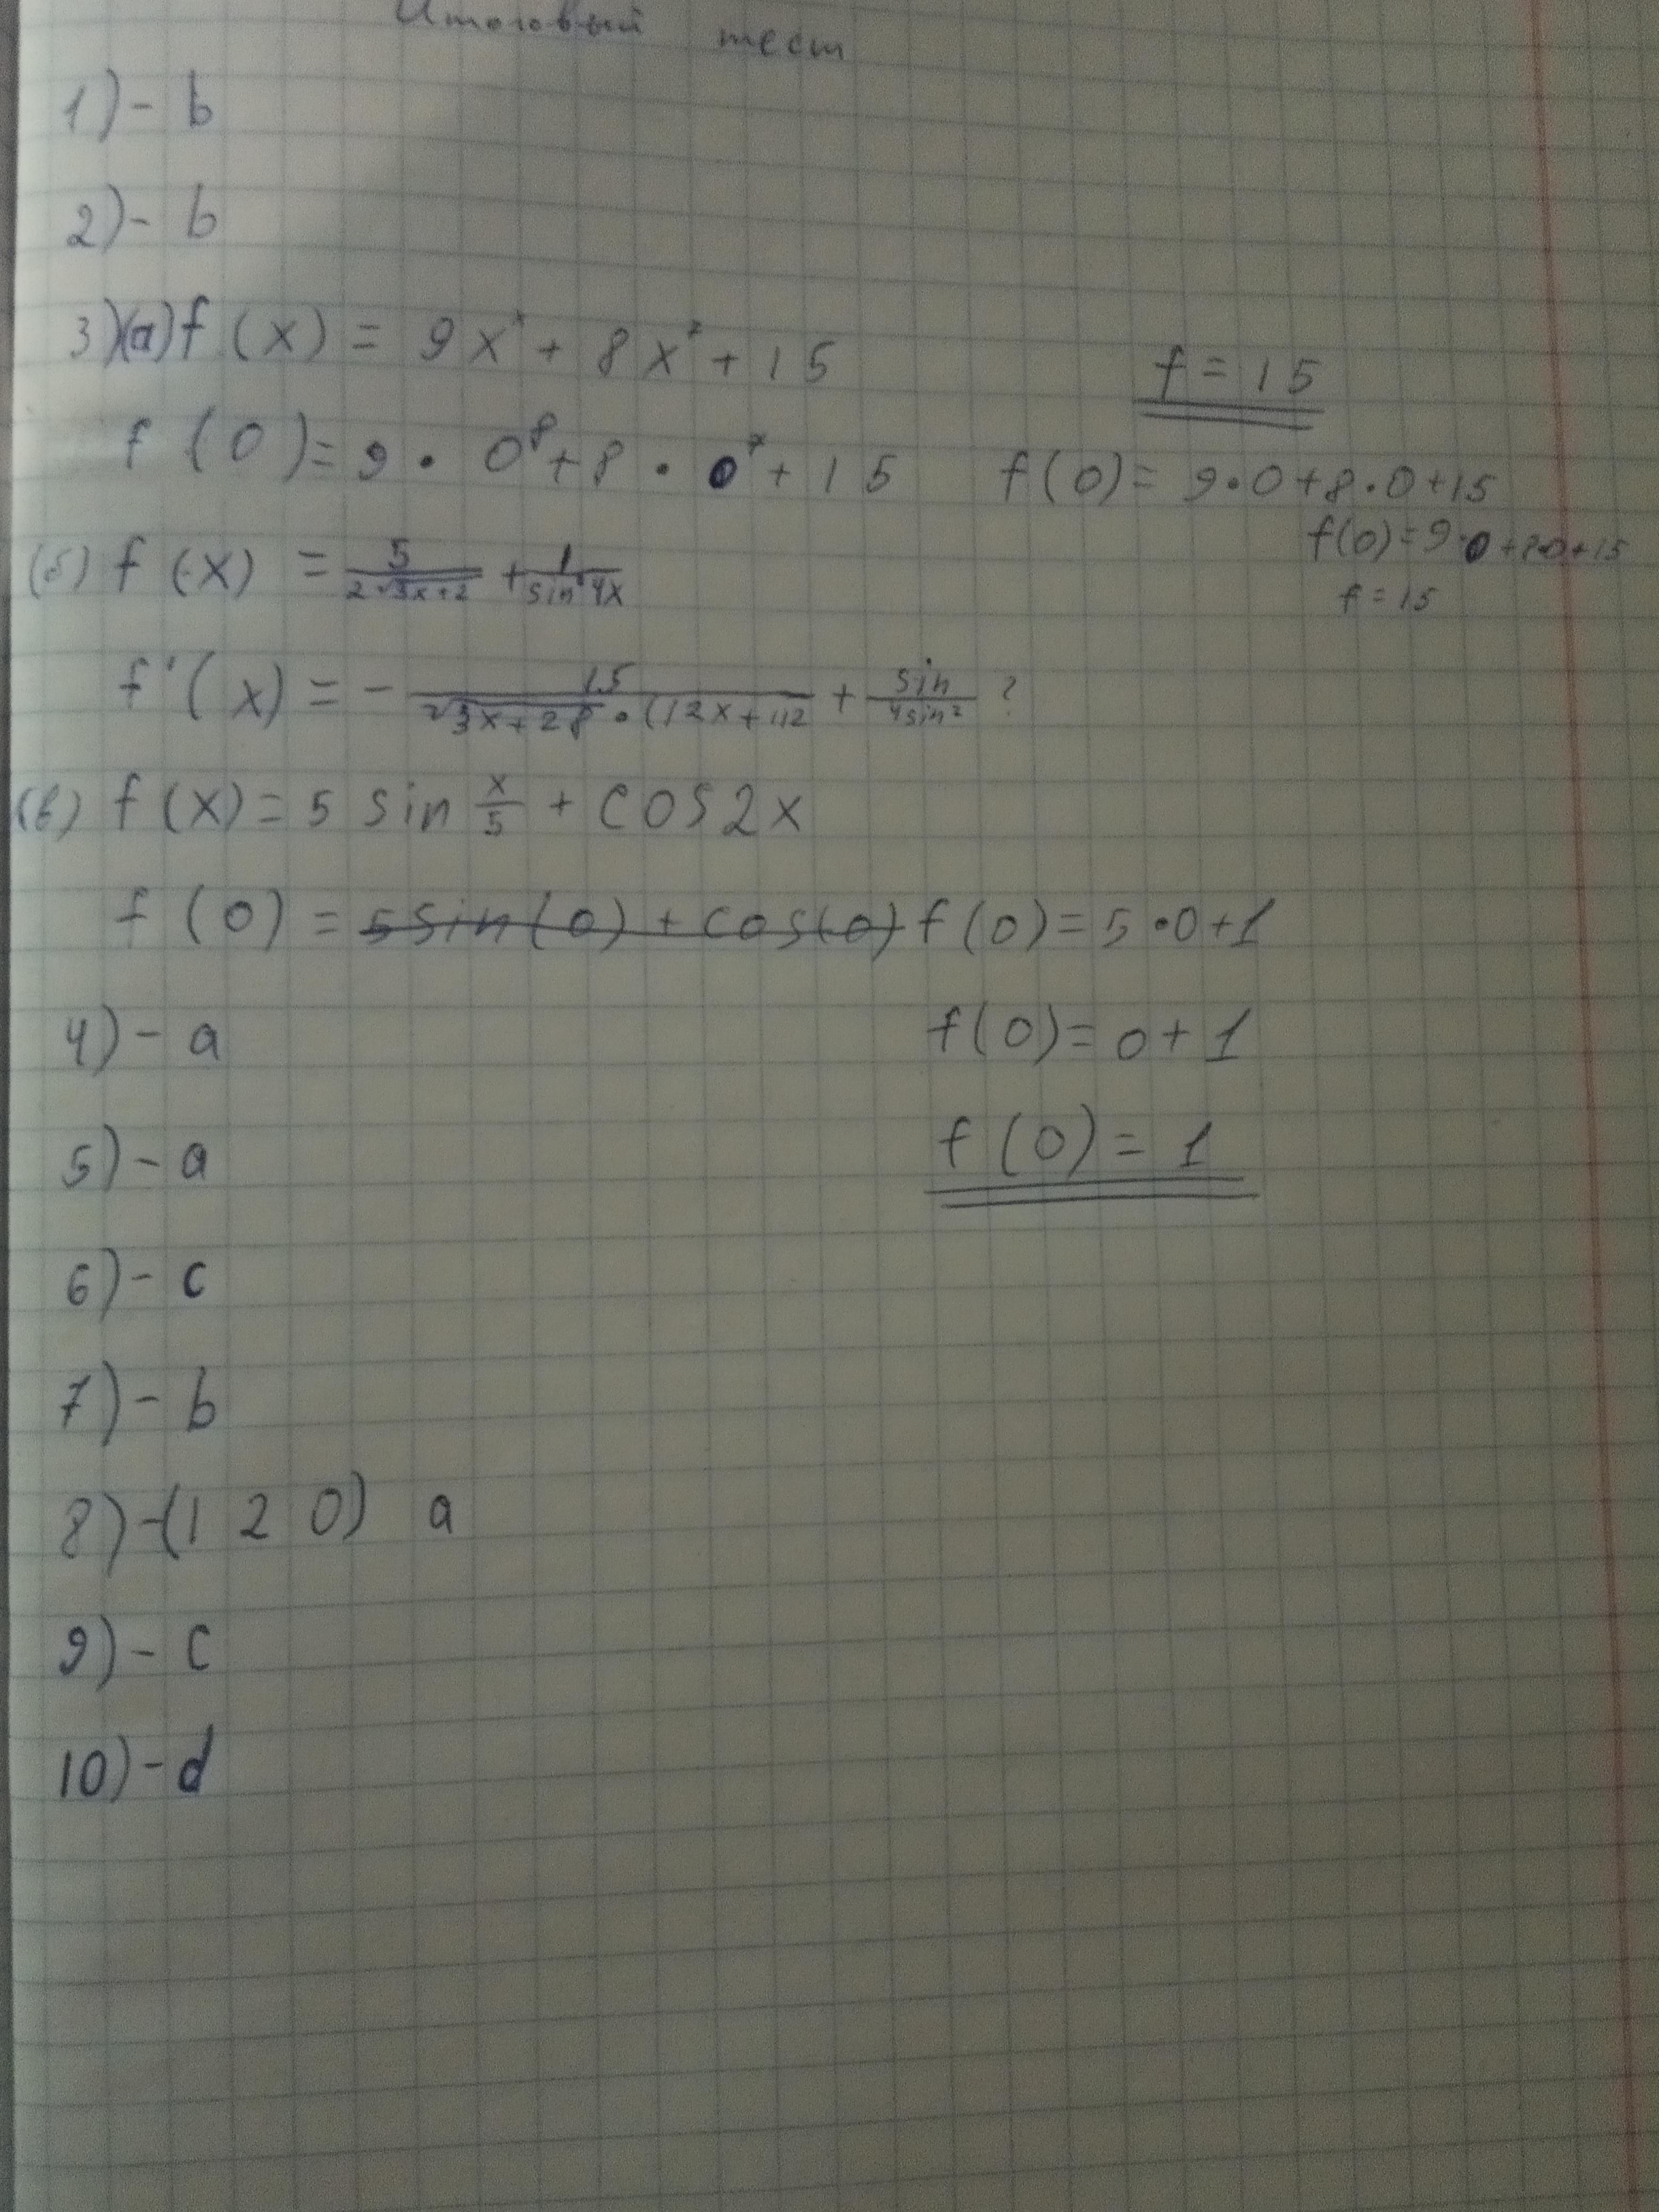 Итоговый тест
1) - b
2) - b
3)(а) f(x) = 9x + 8x + 15
f = 15
f(0) = 9 · 0⁸ + 8 · 0⁷ + 15
f(0) = 9·0+8·0+15
f(0)=9·0+8·0+15
f = 15
(б) f(x) = 5/(2√3x+2) + 1/(sin 4x)
f'(x) = - 15/(√3x+28 · (12x+112) + sin/(4sin²) ?
(в) f(x) = 5 sin x/5 + cos2x
f(0) = 5sin(0) + cos(0) f(0) = 5·0+1
4) - a
f(0) = 0 + 1
5) - a
f(0) = 1
6) - c
7) - b
8) - (1 2 0) a
9) - c
10) - d